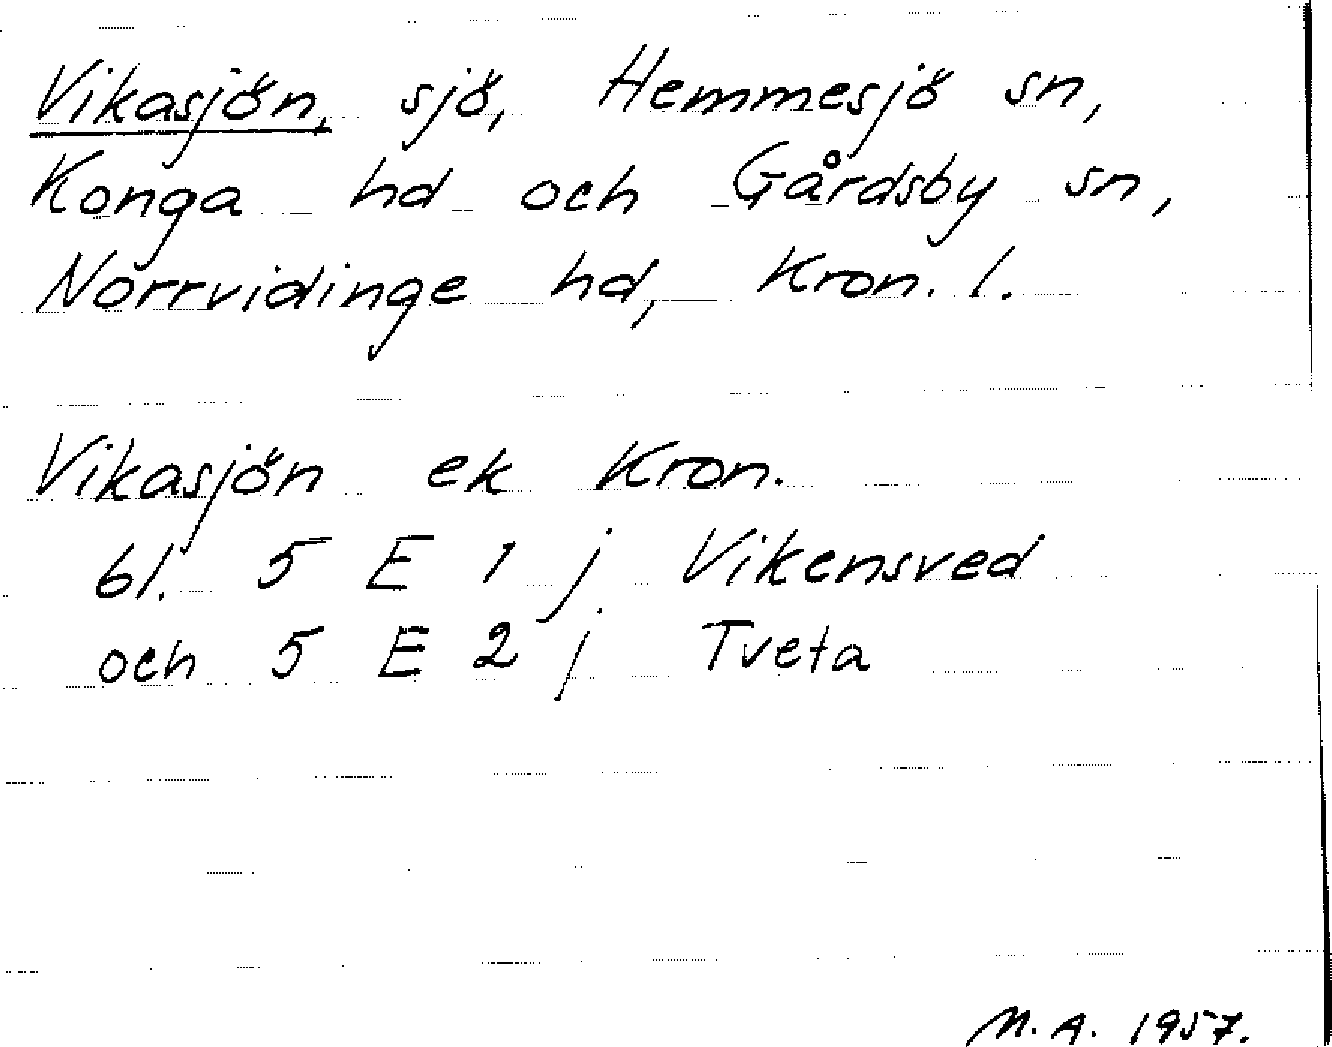 Vikasjön, sjö, Hemmesjö sn,
Konga hd och Gårdsby sn,
Norrvidinge hd, Kron. l.
Vikasjön ek Kron.
bl. 5 E 1 j Vikensved
och 5 E 2 j Tveta
M. A. 1957.